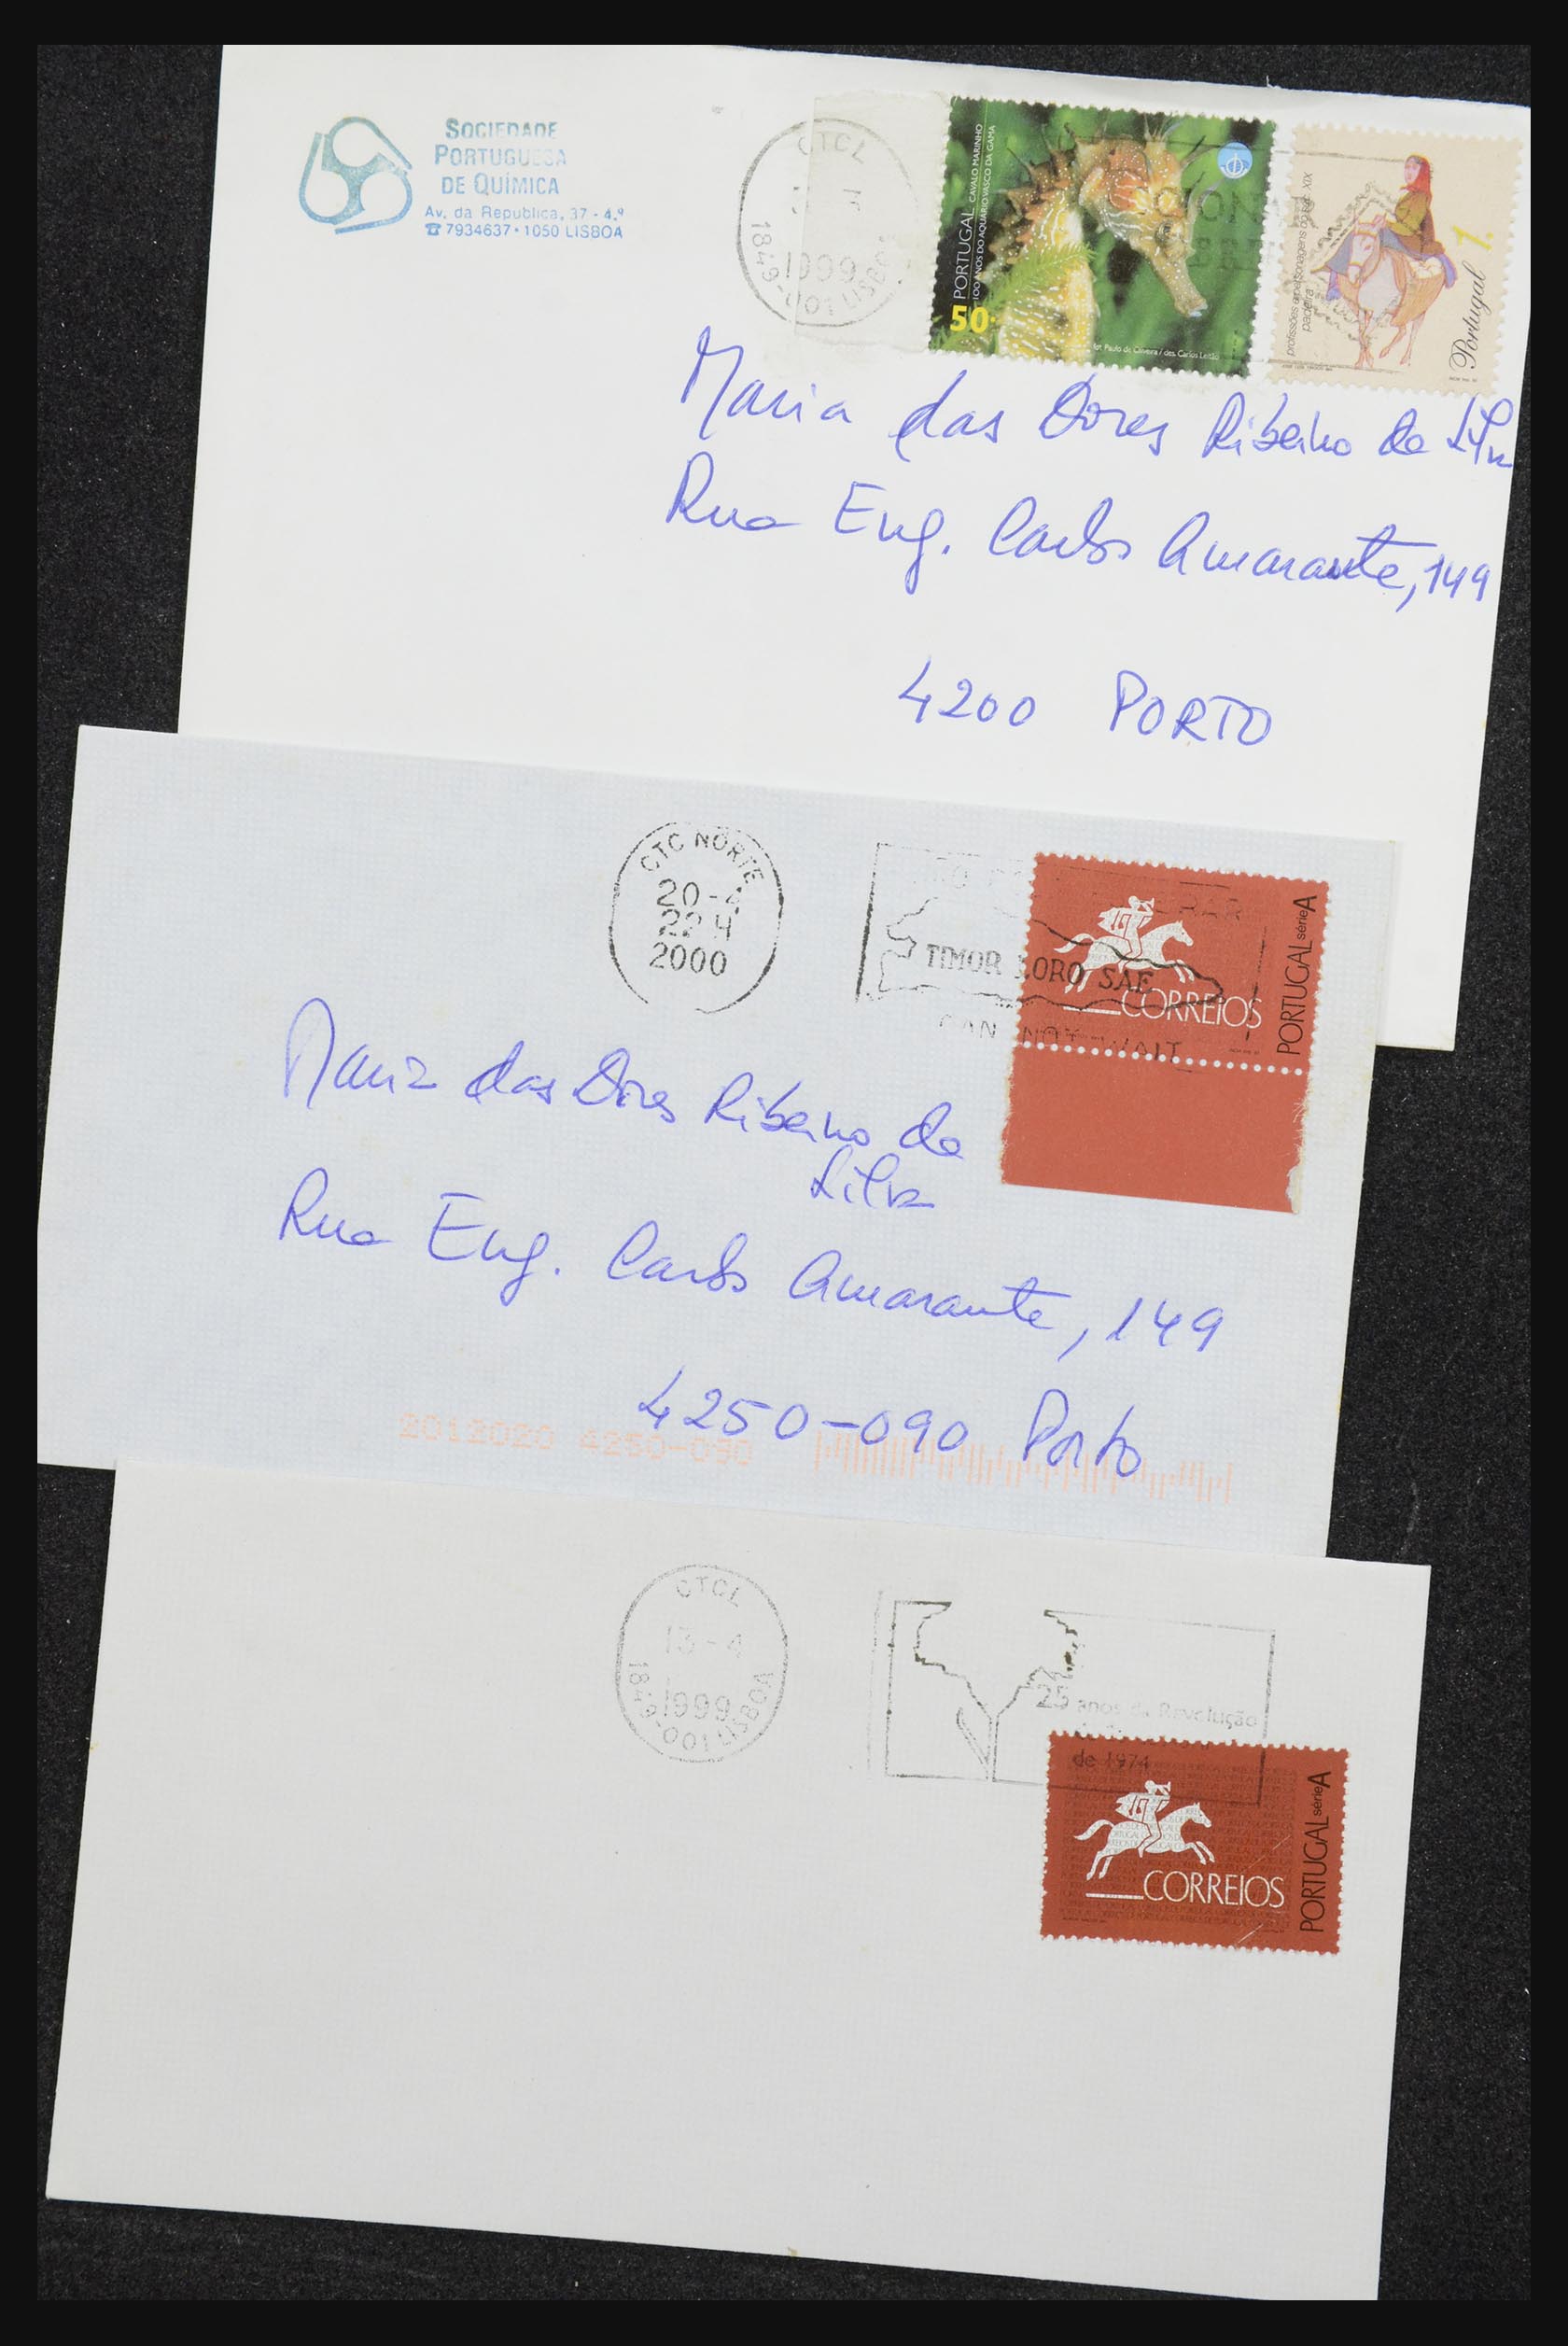 SOCIEDADE
PORTUGUESA
DE QUÍMICA
Av. da Republica, 37 - 4.º
☎ 7934637 • 1050 LISBOA
CTCL
1999
1849-001 LISBOA
PORTUGAL CAVALO MARINHO
100 ANOS DO AQUÁRIO VASCO DA GAMA
50.
fot. Paulo de Oliveira / des. Carlos Leitão
profissões e personagens do séc. XIX
padeira
1.
Portugal
Maria das Dores Ribeiro da Silva
Rua Eng. Carlos Amarante, 149
4200 PORTO
CTC NORTE
20-4
22 H
2000
TIMOR LORO SAE
CAN NOT WAIT
CORREIOS
PORTUGAL série A
Maria das Dores Ribeiro da
Silva
Rua Eng. Carlos Amarante, 149
4250-090 Porto
2012020 4250-090
CTCL
13-4
1999
1849-001 LISBOA
25 anos da Revolução
de 1974
CORREIOS
PORTUGAL série A